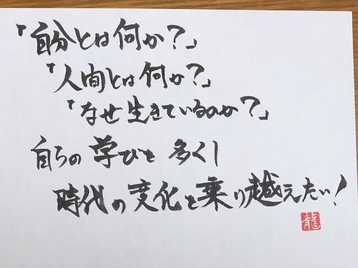 「自分とは何か?」
「人間とは何か?」
「なぜ生きているのか?」
自らの学びを多くし
時代の変化を乗り越えたい!
龍